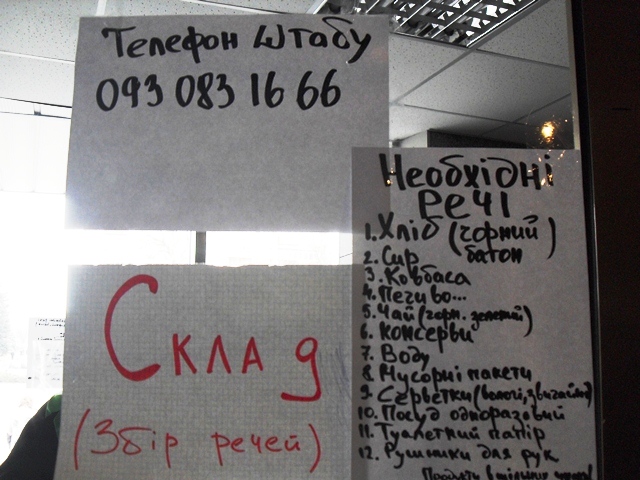 Телефон штабу
093 083 16 66
Необхідні
речі
1. Хліб (чорний
батон)
2. Сир
3. Ковбаса
4. Печиво...
5. Чай (чорн. зелений)
6. Консерви
7. Воду
8. Мусорні пакети
9. Серветки (вологі, звичайні)
10. Посуд одноразовий
11. Туалетний папір
12. Рушники для рук
Продукти
Склад
(Збір речей)